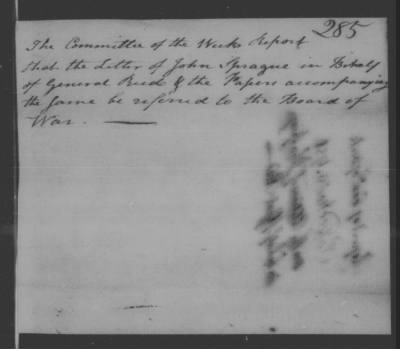 285
The Committee of the Week Report
that the Letter of John Sprague in Behalf
of General Reid & the Papers accompanying
the same be referred to the Board of
War. —